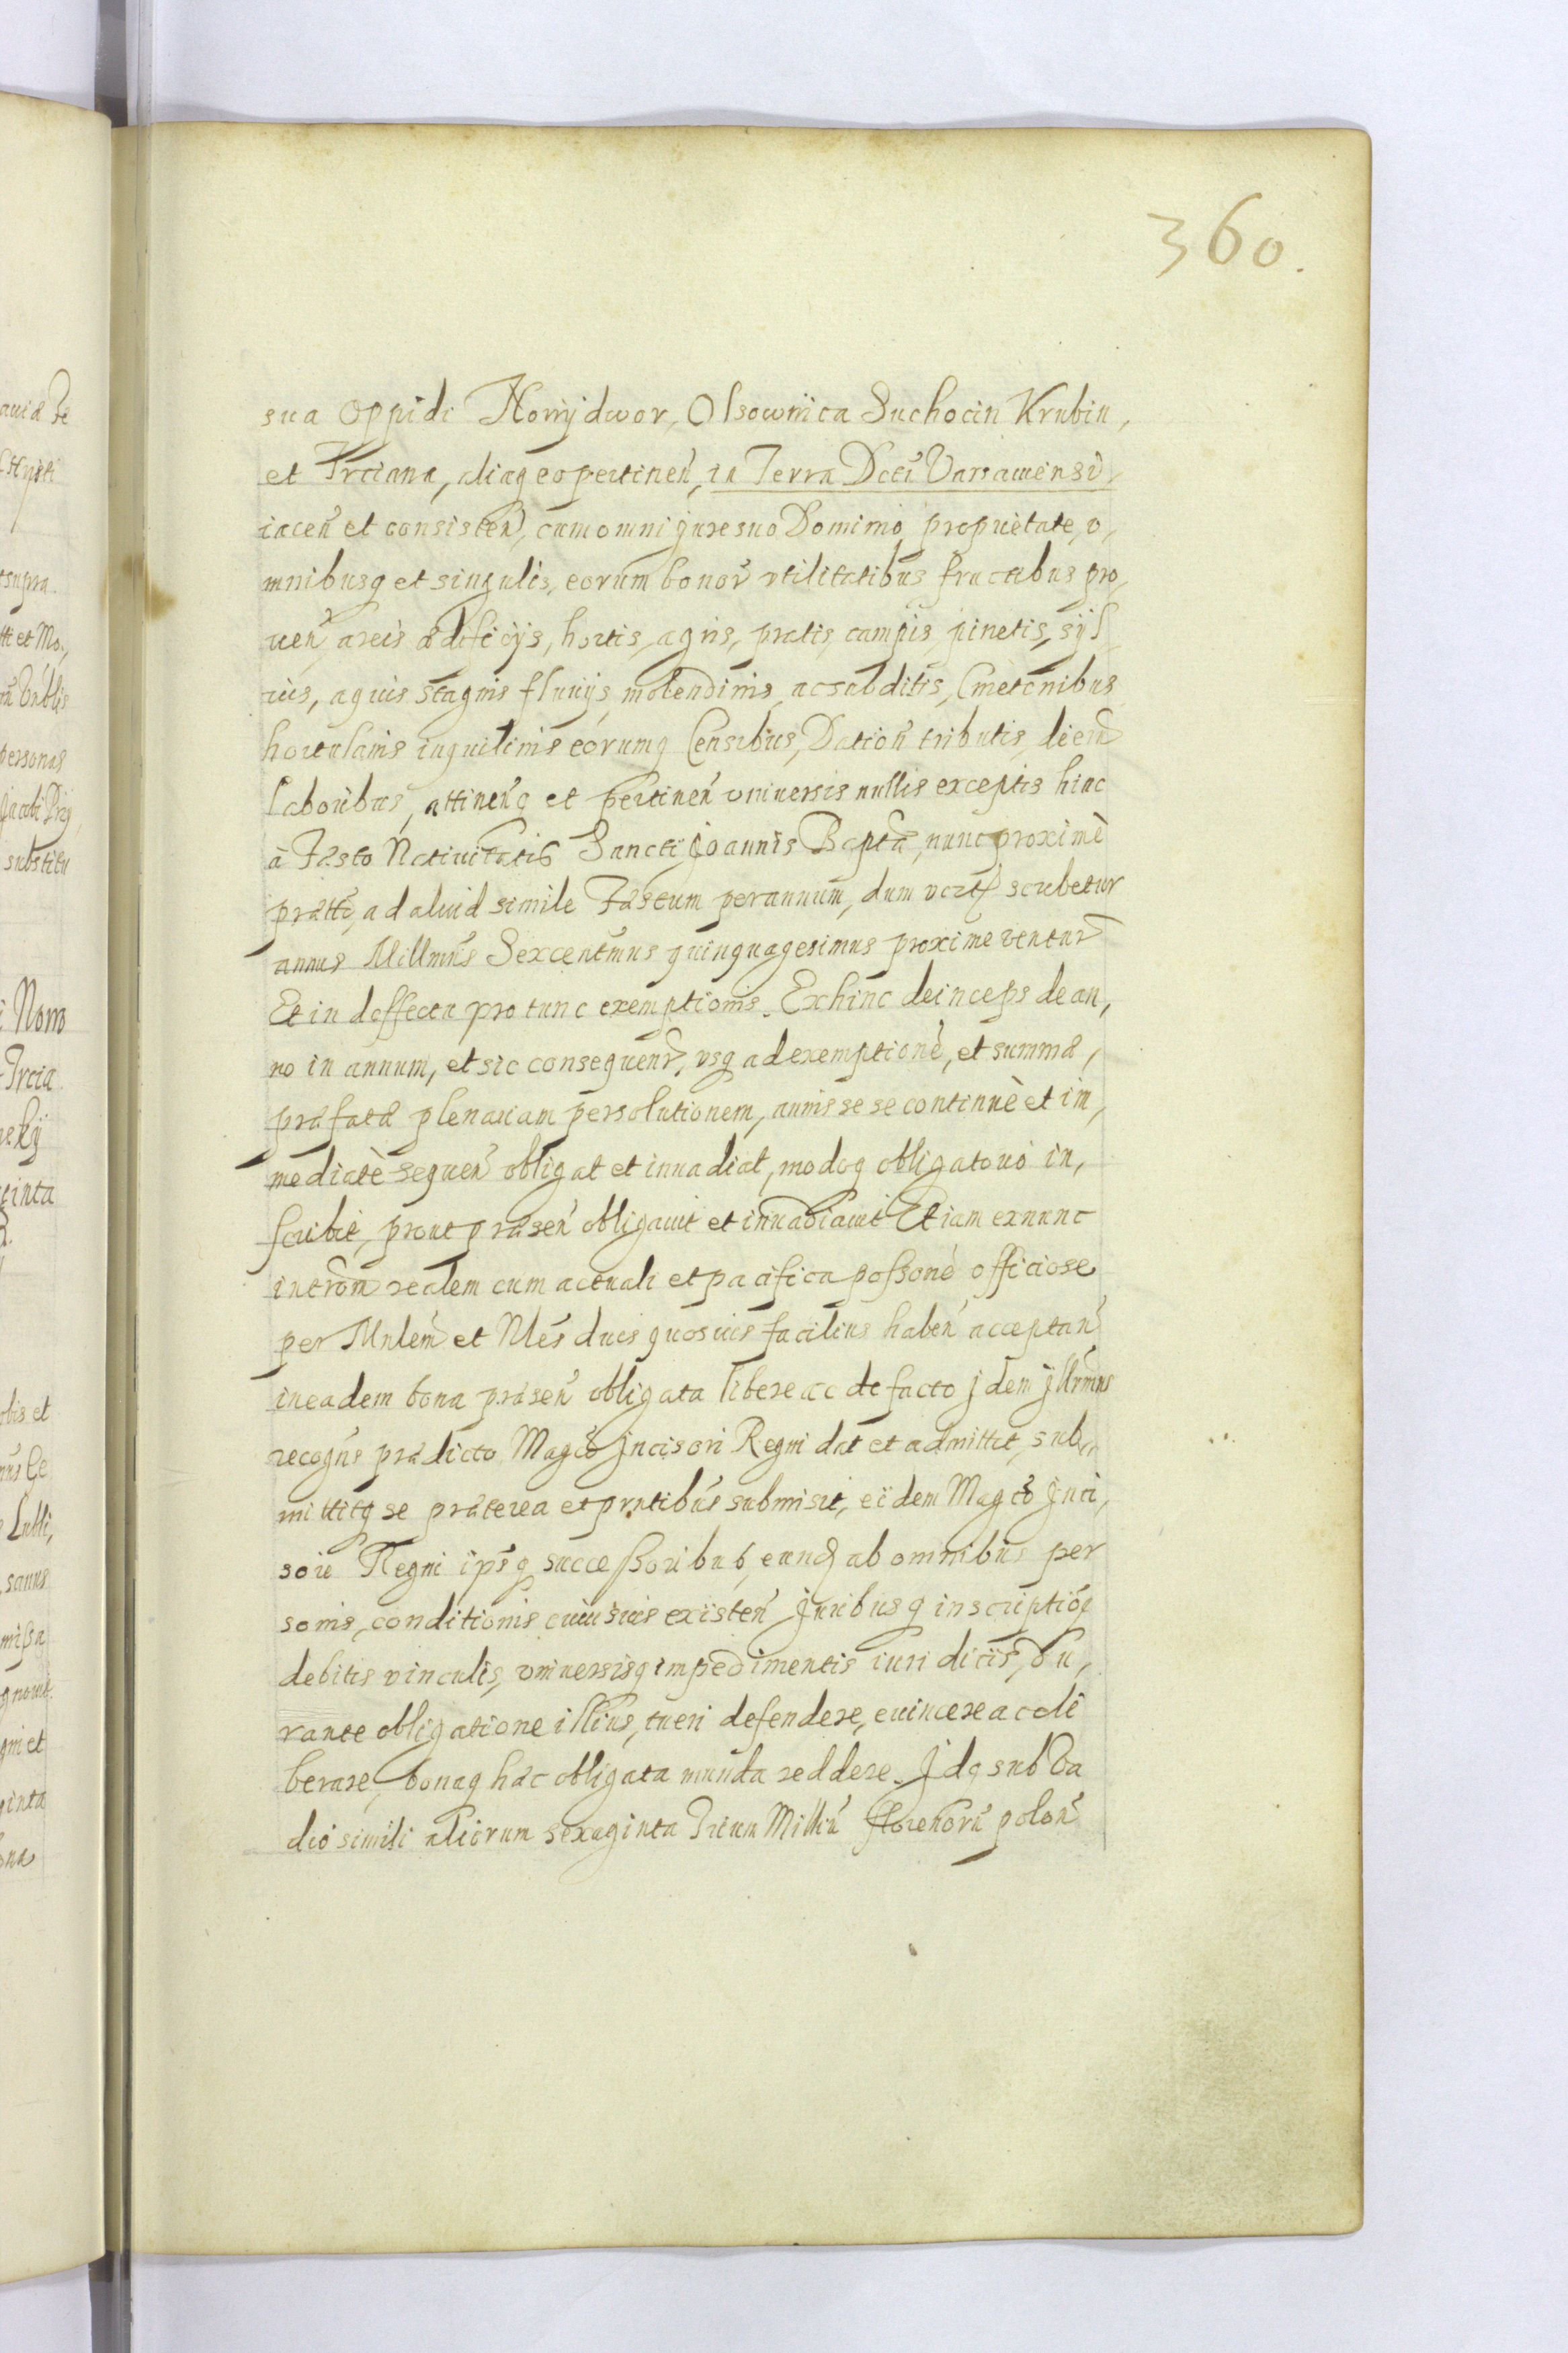 360.
sua Oppidi Nowydwor, Olsownica Suchocin Krubin,
et Trciana, aliaq eo pertinen̄, in Terra Dctū Varsauiensi
iacen̄ et consisten̄, cum omni jure suo Dominio proprietate, o,
mnibusq et singulis, eorum bonor̄ vtilitatibus fructibus pro,
uen̄, areis ædificijs, hortis, agris, pratis, campis, pinetis, syl
uis, aquis stagnis fluuijs molendinis, ac subditis, Cmetonibus
hortulanis inquilinis eorumq Censibus, Dation̄ tributis,
laboribus, attinen̄q et pertinen̄ vniuersis nullis exceptis hinc
à Festo Natiuitatis Sancti Joannis Baptæ, nunc proximè
prætto, ad aliud simile Festum per annum, dum scribetur
annus Millmūs Sexcentmus quinquagesimus proxime ventur̄
Et in deffectu pro tunc exemptionis. Ex hinc deinceps de an,
no in annum, et sic consequenr̄, vsq ad exemptionē, et summæ,
præfatæ plenariam persolutionem, annis se se continuè et im,
mediatè sequen̄ obligat et inuadiat, modoq obligatorio in,
scribit, prout præsen̄ obligauit et inuadiauit Etiam ex nunc
intrōm realem cum actuali et pacifica possonē officiose
per Mnlēm et Nlēs duis quosuis facilius haben̄ acceptan̄
in eadem bona præsen̄ obligata libere ac de facto jdem jllrmus
recogn̄s prædicto Magcō Jncisori Regni dat et admittit, sub,,
mittitq se præterea et prntibūs submisit, eidem Magcō Jnci,
sori Regni ipsq successoribus, eund ab omnibus per
sonis, conditionis cuiusuis existen̄ Juribusq inscriptiō
debitis vinculis, vniuersisq impedimentis iuridicis, du,
rante obligatione illius, tueri defendere, euincere ac deli
berare, bonaq hæc obligata munda reddere. Jdq sub Va
dio simili aliorum sexaginta Trium Milliū florenorū polon̄